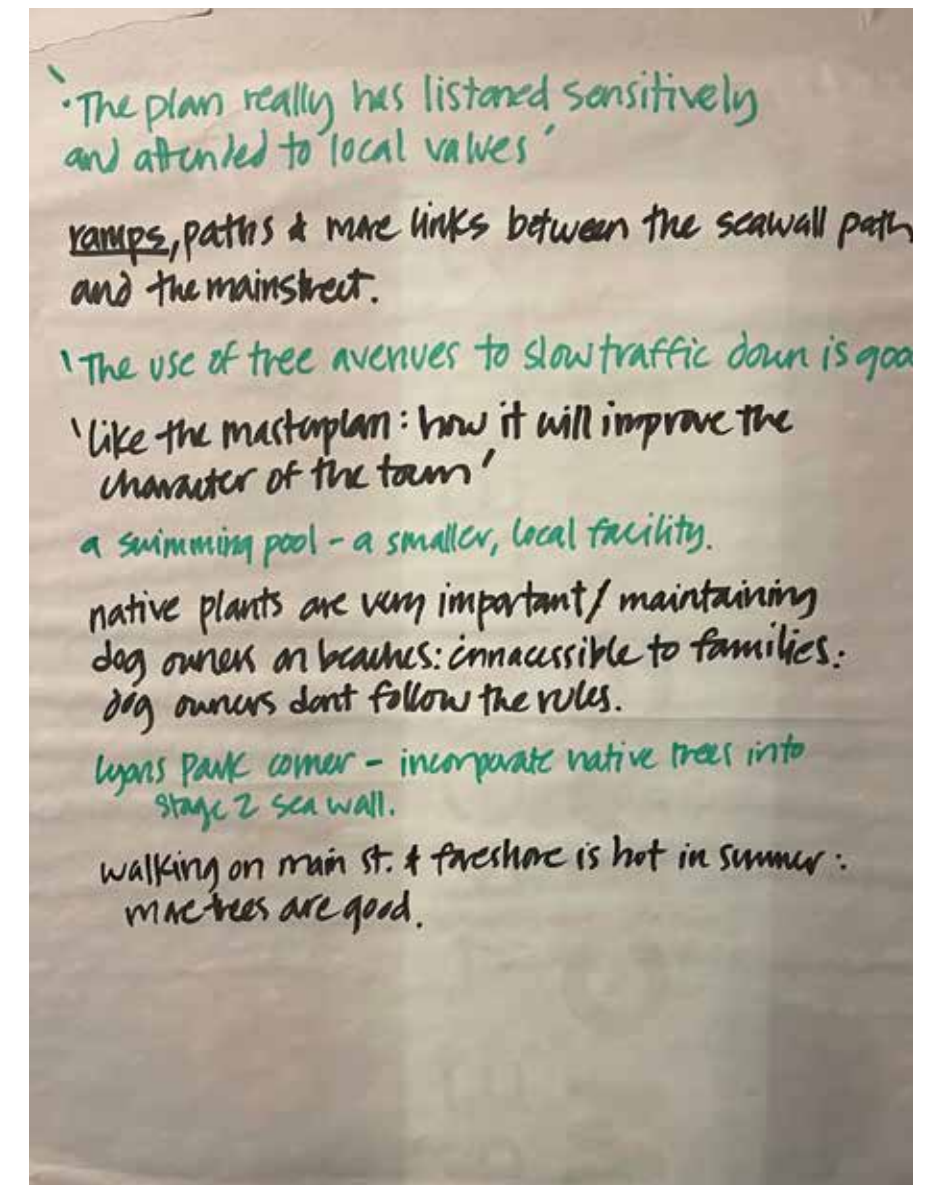 'The plan really has listened sensitively
and attended to local values'
ramps, paths & more links between the seawall path
and the mainstreet.
'The use of tree avenues to slow traffic down is goo
'like the masterplan: how it will improve the
character of the town'
a swimming pool - a smaller, local facility.
native plants are very important/maintaining
dog owners on beaches: innacessible to families:
dog owners dont follow the rules.
lyons park corner - incorporate native trees into
stage 2 sea wall.
walking on main st. & foreshore is hot in summer:
more trees are good.